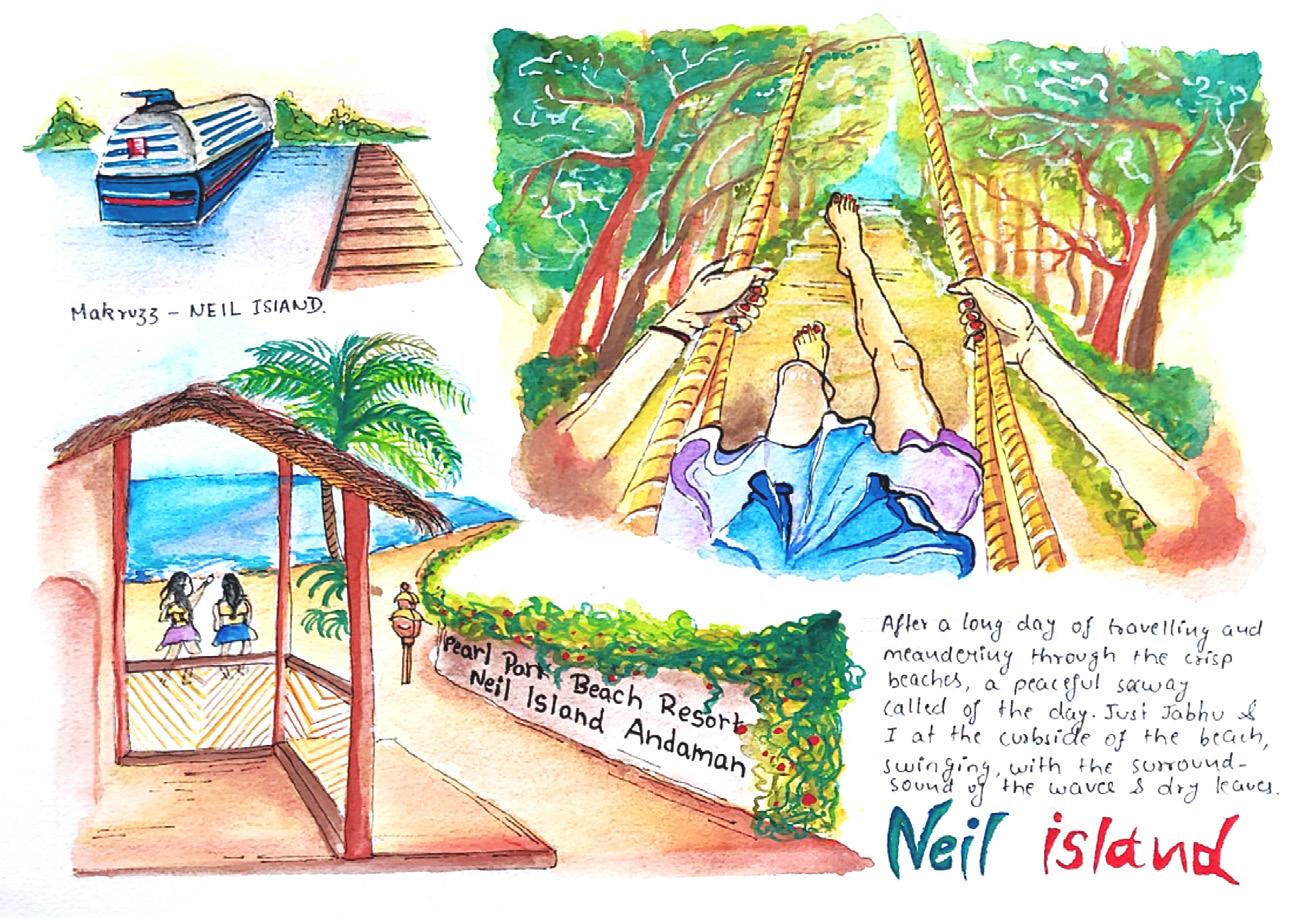 Makruzz – NEIL ISLAND.
Pearl Park Beach Resort
Neil Island Andaman
After a long day of travelling and
meandering through the crisp
beaches, a peaceful
called of the day. Just Jabhu &
I at the curbside of the beach,
swinging, with the surround-
sound of the waves & dry leaves.
Neil island